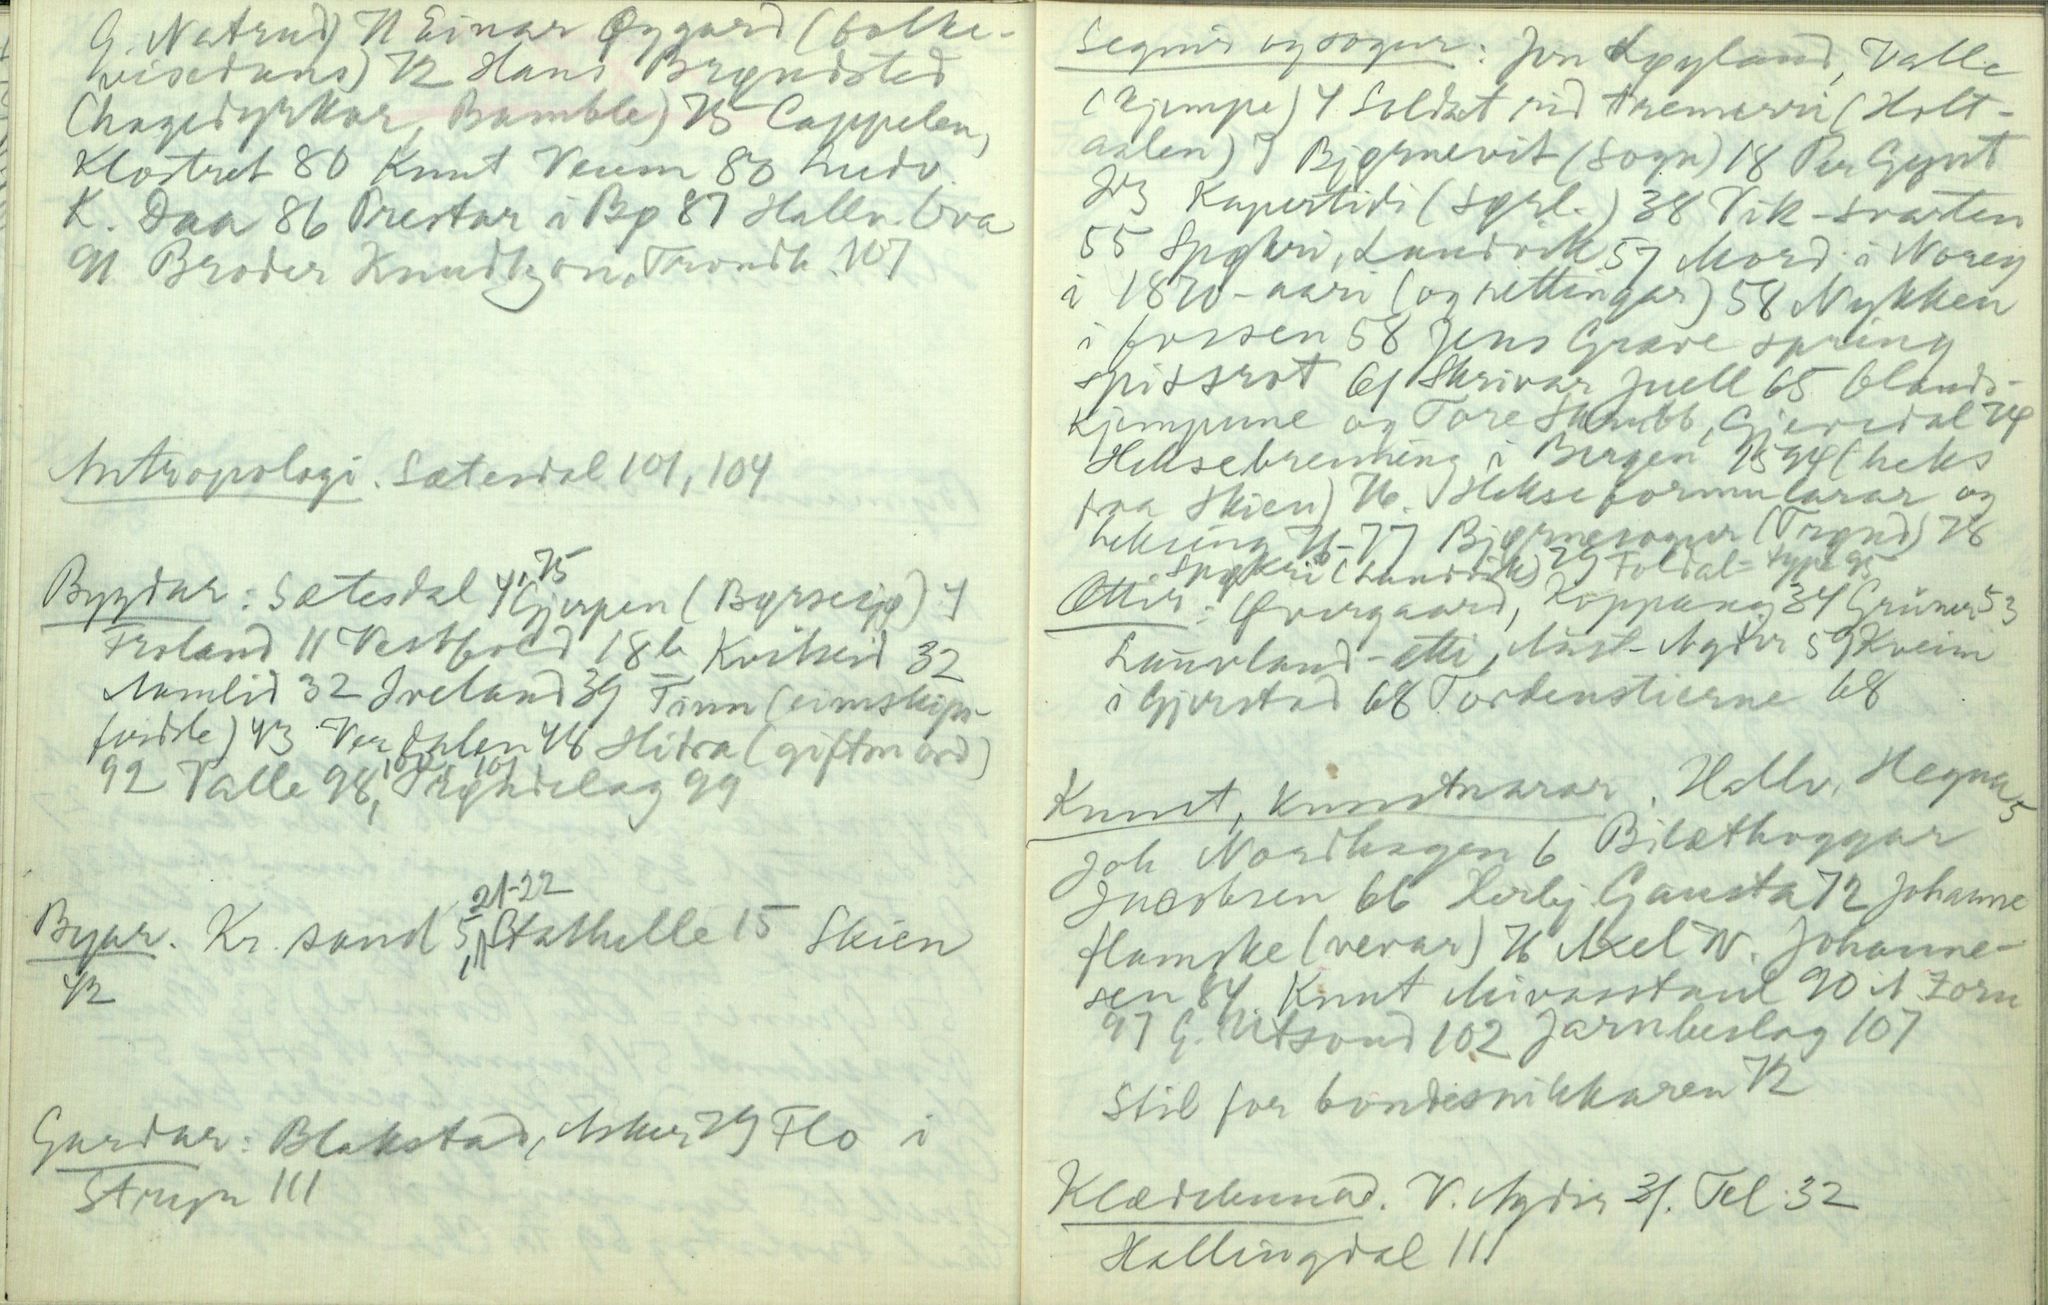 G. Natrud) 71 Einar Øygard (folke-
visedans) 72 Hans Brynildsted
(hagedyrkar, Bamble) 75 Cappelen,
Klostret 80 Knut Veum 80 Ludv.
K. Daa 86 Prestar i Bø 87 Hallv.
91 Broder Knudtzon, Trondh. 107
Antropologi. Sætesdal 101, 104
Bygdar: Sætesdal 4, 75 Gjerpen (Børsesjø) 4
Froland 11 Vestfold 18b Kvitseid 32
Aamlid 32 Iveland 39 Tinn (eimskips-
ferdsle) 43 Verdalen 48 Hidra (giftmord)
92 Valle 98, 100, 101 Trøndelag 99
Byar. Kr. sand 5, 11, 21-22 Stathelle 15 Skien
42
Gardar: Blakstad, Asker 29 Flo i
Stryn 111
Segnir og sogur: Jon Løyland, Valle
(kjempe) 4 Soldat rid (Holt-
aalen) 7 Bjørnevit (Sogn) 18 Per Gynt
Kapertidi (Sørl.) 38 Vik-svarten
55 Spøkri, Landvik 57 Mord i Noreg
i 1870-aari (og rettingar) 58 Nykken
i fossen 58 Jens Grave spring
spissrot 61 Skrivar Juell 65 Glands-
kjempune og Tore Skrubb, Gjevedal 74
Heksebrenning i Bergen 1594 (heks
fraa Skien) 76. Hekseformularar og
heksing 76-77 Bjørnesogur (Trønd) 78
Spøkeri (Landvik) 79 Foldal-type 95
Ættir: Øvergaard, Koppang 34 Grüner 53
Laurland-ætti, Aust-Agder 59 Kveim
i Gjerstad 68 Tordenstierne 68
Kunst, kunstnarar. Hallv. Hegna 5
Joh Nordhagen 6 Bilæthoggar
Jacobsen 66 Herbj. Gausta 72 Johanne
flamske (vevar) 76 Axel W. Johanne-
sen 84. Knut Mevasstaul 90 A Zorn
97 G. Utsond 102 Jarnbeslag 107
Stil for bondesnikkaren 72
Klædebunad. V. Agder 31. Tel. 32
Hallingdal 111